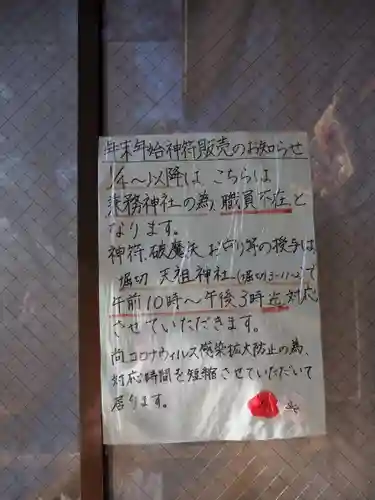 年末年始神符販売のお知らせ
1/4〜以降は、こちらは
兼務神社の為、職員不在と
なります。
神符、破魔矢、お守り等の授与は、
堀切 天祖神社(堀切3-11-2)で
午前10時〜午後3時迄対応
させていただきます。
尚コロナウィルス感染拡大防止の為、
対応時間を短縮させていただいて
居ります。